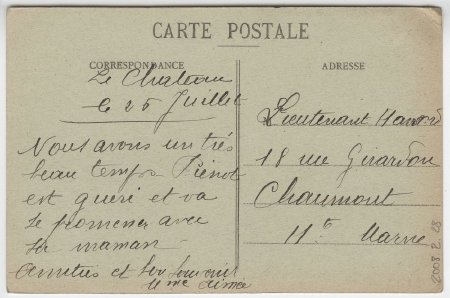 CARTE POSTALE
CORRESPONDANCE
Le Chateau
le 25 Juillet
Nous avons un très
beau temps Pierrot
est guéri et va
se promener avec
sa maman
Amitiés et bon souvenir
Mme
ADRESSE
Lieutenant
18 rue Girardon
Chaumont
Hte Marne
2008.2.28